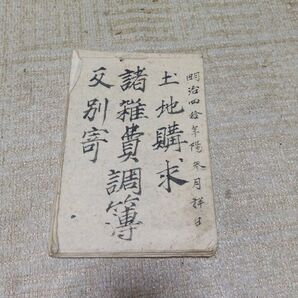 明治四拾年陽参月拝日
土地購求
諸雑費調簿
反別寄